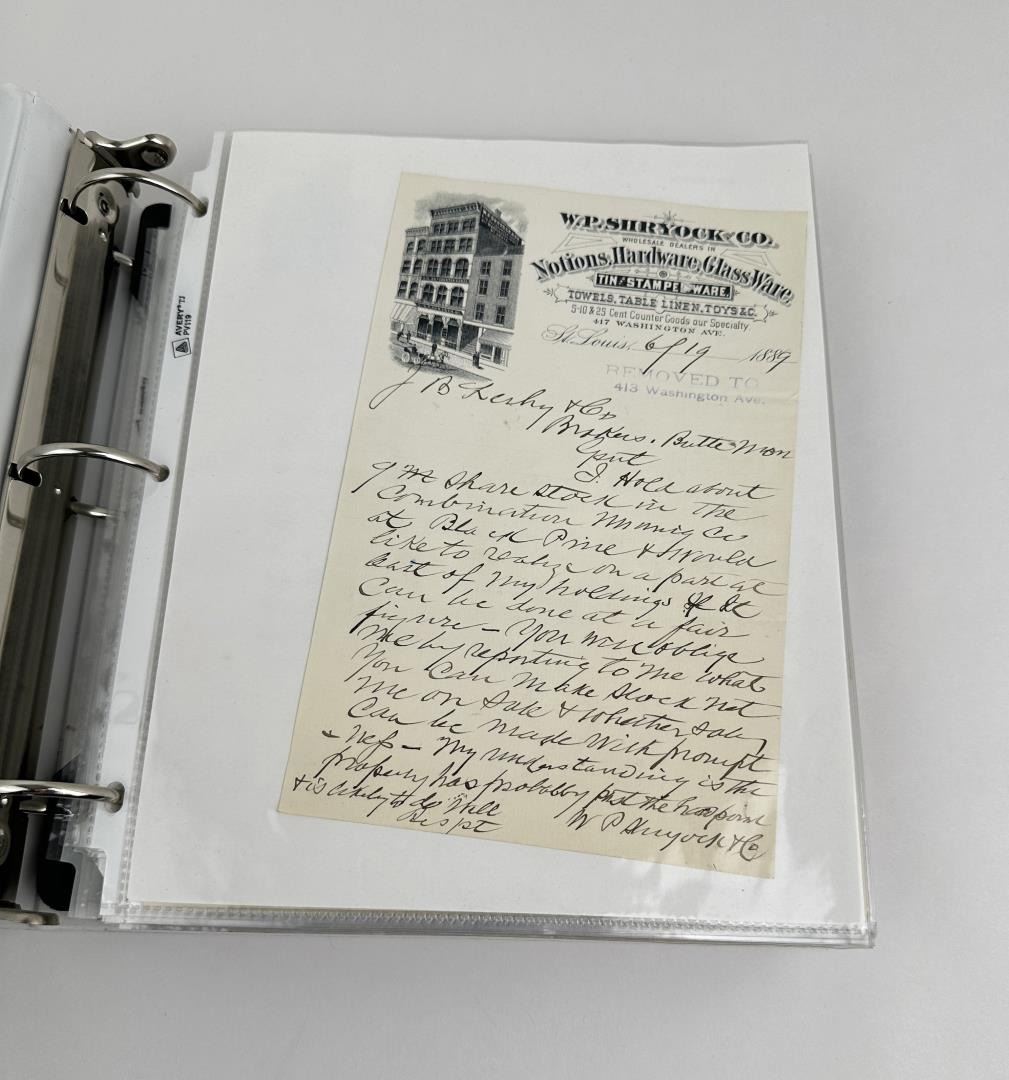 W.P. SHRYOCK & CO.
WHOLESALE DEALERS IN
Notions, Hardware, Glass Ware,
TIN AND STAMPED WARE,
TOWELS, TABLE LINEN, TOYS &C.
5-10 & 25 Cent Counter Goods our Specialty
417 WASHINGTON AVE.
St. Louis, 6/19 1889
REMOVED TO
413 Washington Ave.
J B Kerby & Co
Brokers. Butte Mon
Gent
I Hold about
9 M Share Stock in the
Combination Mining Co
at Black Pine & would
like to realize on a part at
least of my holdings If It
can be done at a fair
figure - You will oblige
me by reporting to me what
You can make Stock net
me on Sale & whether Sales
can be made with prompt
- ness - My understanding is the
property has probably past the
& is likely to do well
Respt
W P Shryock & Co
AVERY® 73
PV119